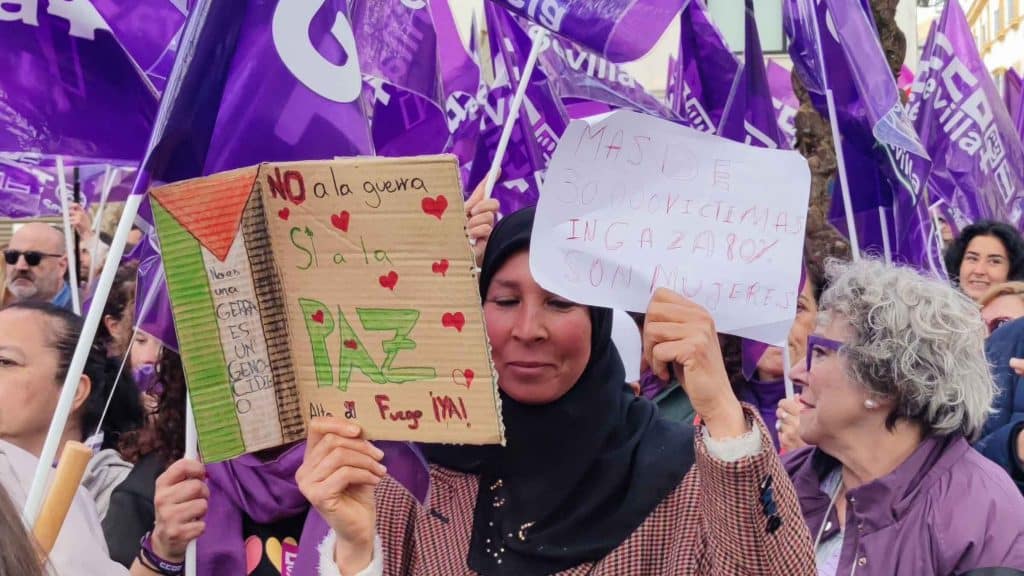 NO a la guerra
Sí a la
PAZ
Alto al Fuego ¡YA!
No es
una
GERRA
ES UN
GENO
CIDIO
MAS DE
30.000 VICTIMAS
IN GAZA 80%
SOM MUJERES
Sevilla
CCOO
Sevilla